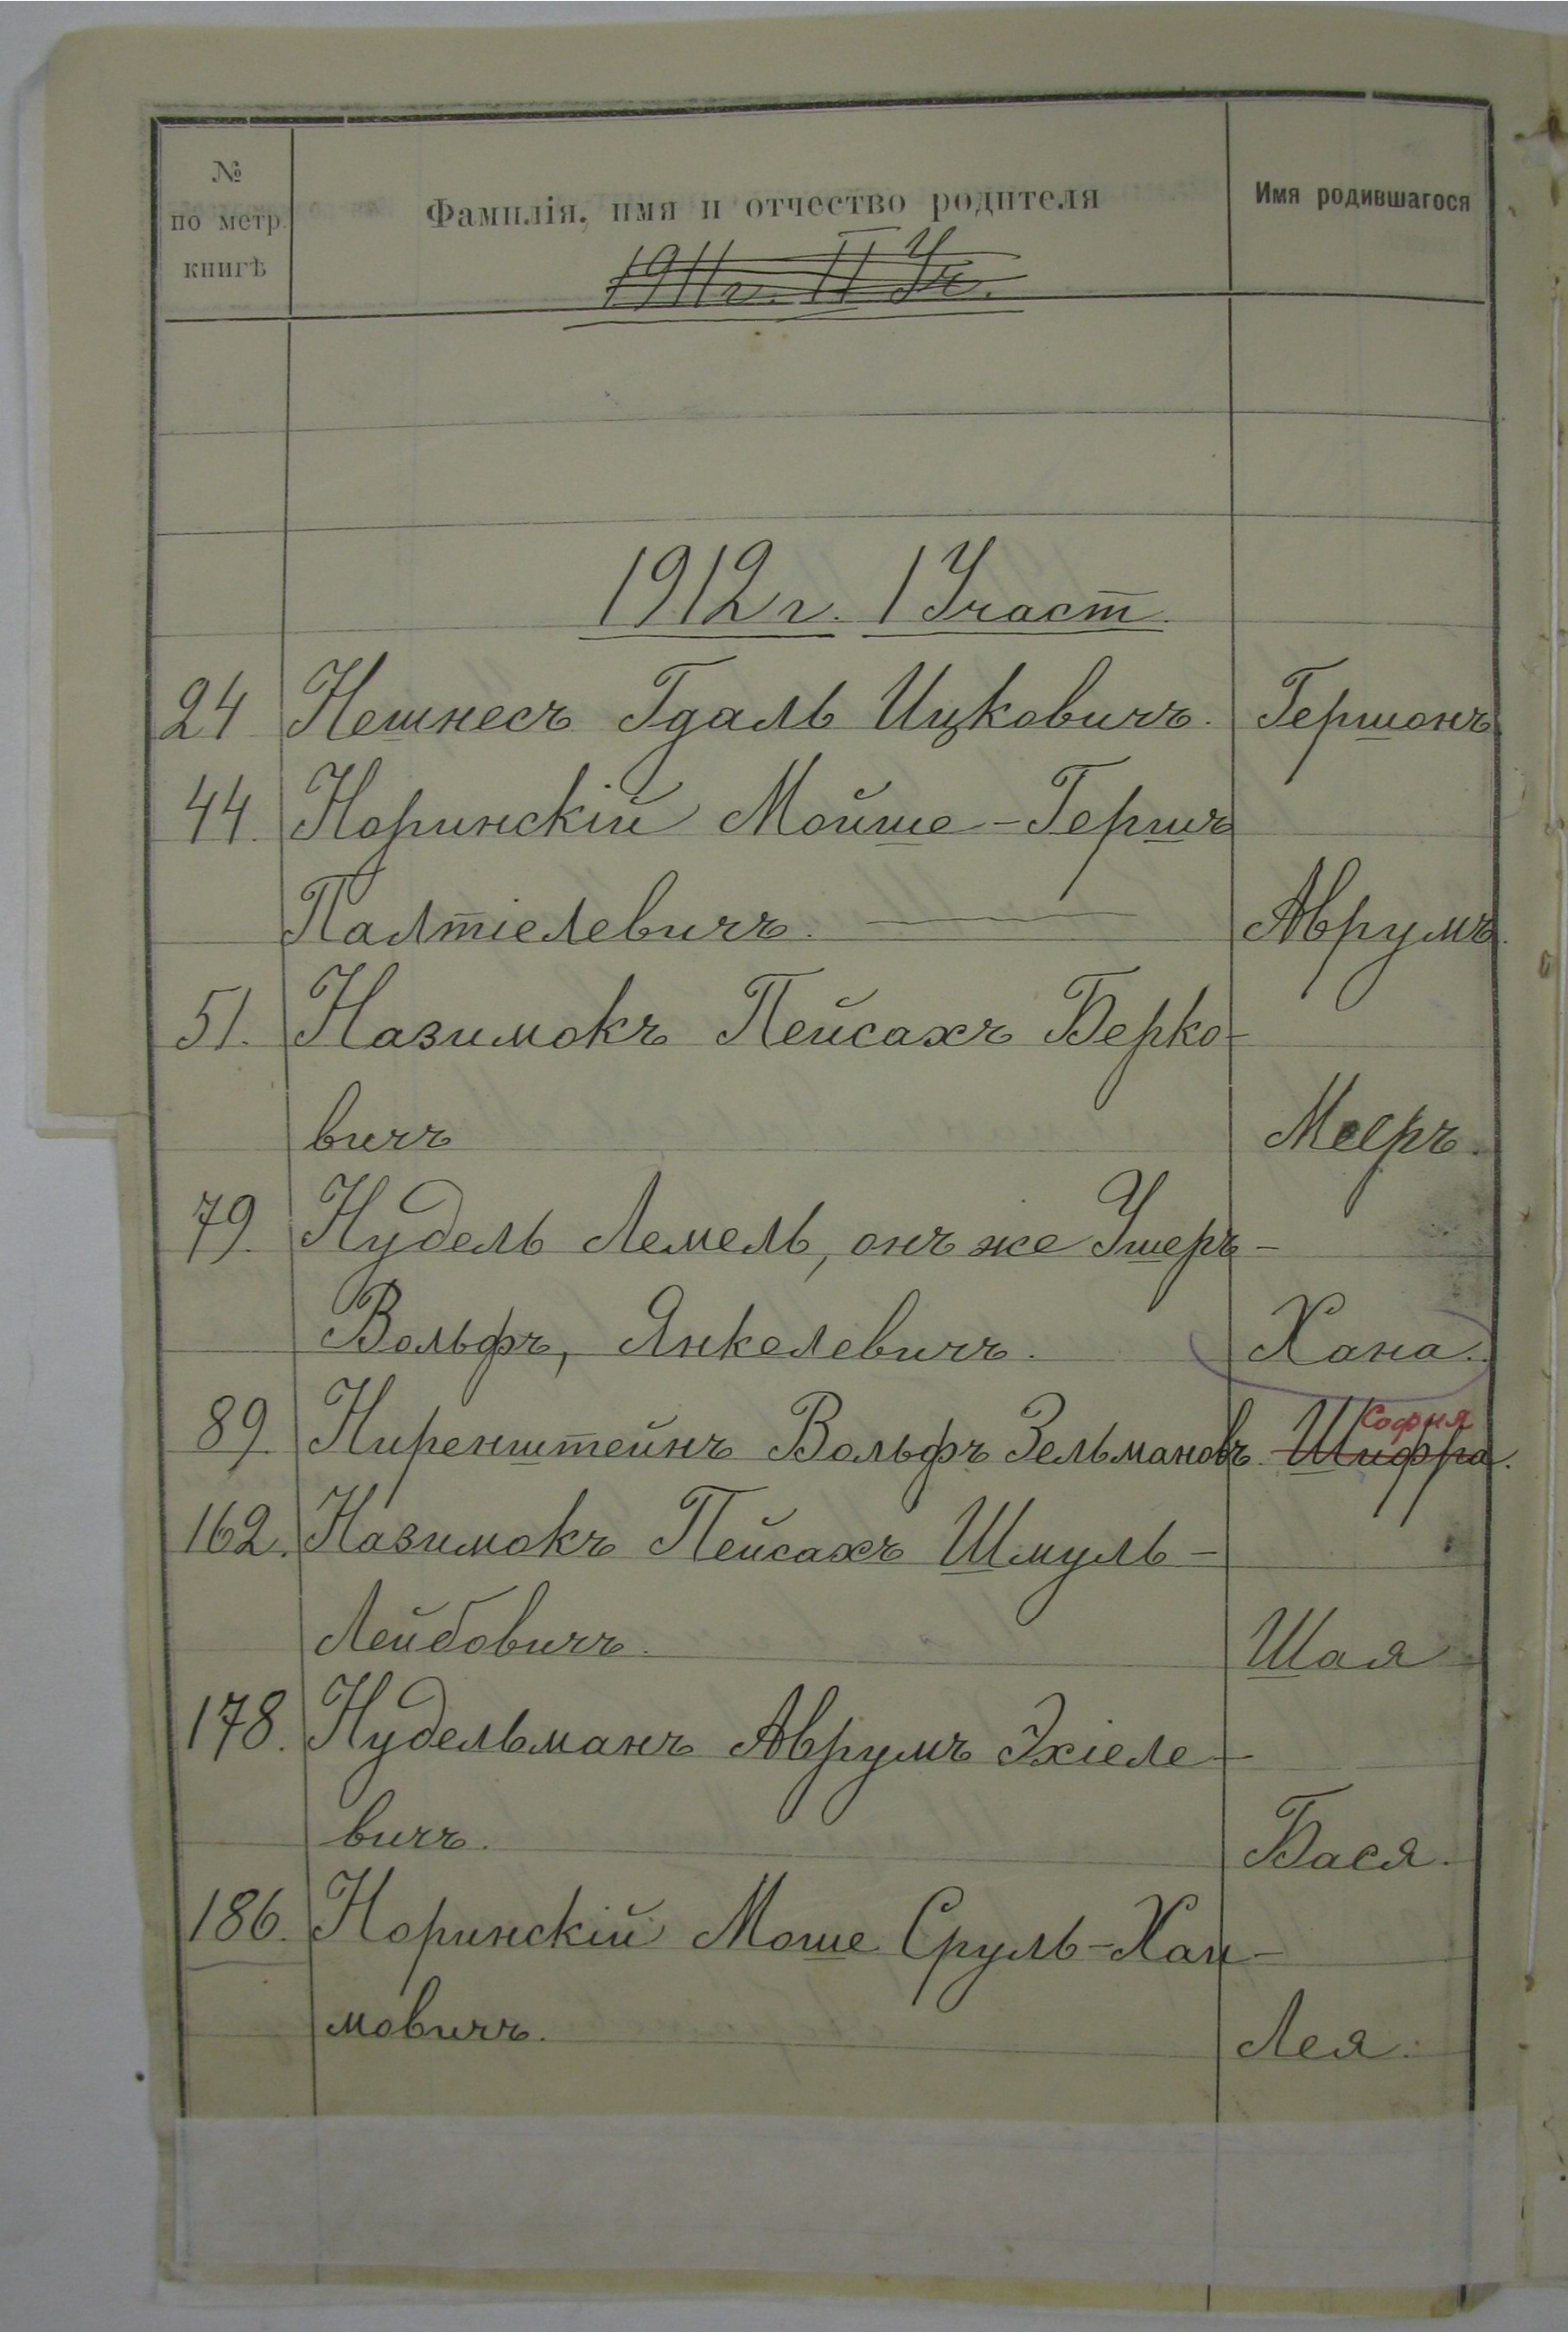 №
по метр.
книгѣ
Фамилія, имя и отчество родителя
Имя родившагося
1911г. II Уч.
1912 г. I Участ.
24 Нешнесъ Гдаль Ицковичъ. Гершонъ
44. Норинскій Мойше-Гершъ
Палтіелевичъ. Аврумъ.
51. Назимокъ Пейсахъ Берко-
вичъ Мееръ.
79. Нудель Лемель, онъ же Ушеръ-
Вольфъ, Янкелевичъ. Хана.
София
89. Ниренштейнъ Вольфъ Зельмановъ. Шифра.
162. Назимокъ Пейсахъ Шмуль-
Лейбовичъ. Шая
178. Нудельманъ Аврумъ Эхіеле-
вичъ. Бася.
186. Норинскій Моше Сруль-Хаи-
мовичъ. Лея.